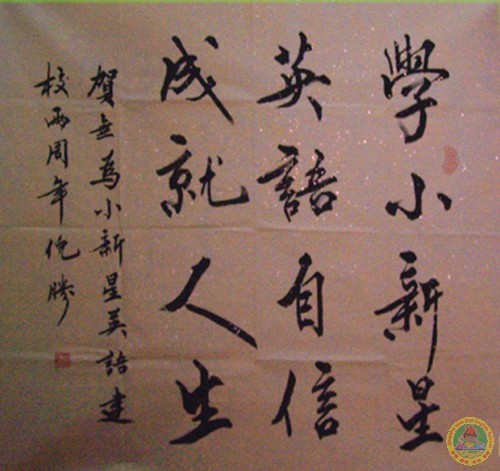 學小新星
英語自信
成就人生
賀無為小新星英語建
校兩周年倪勝